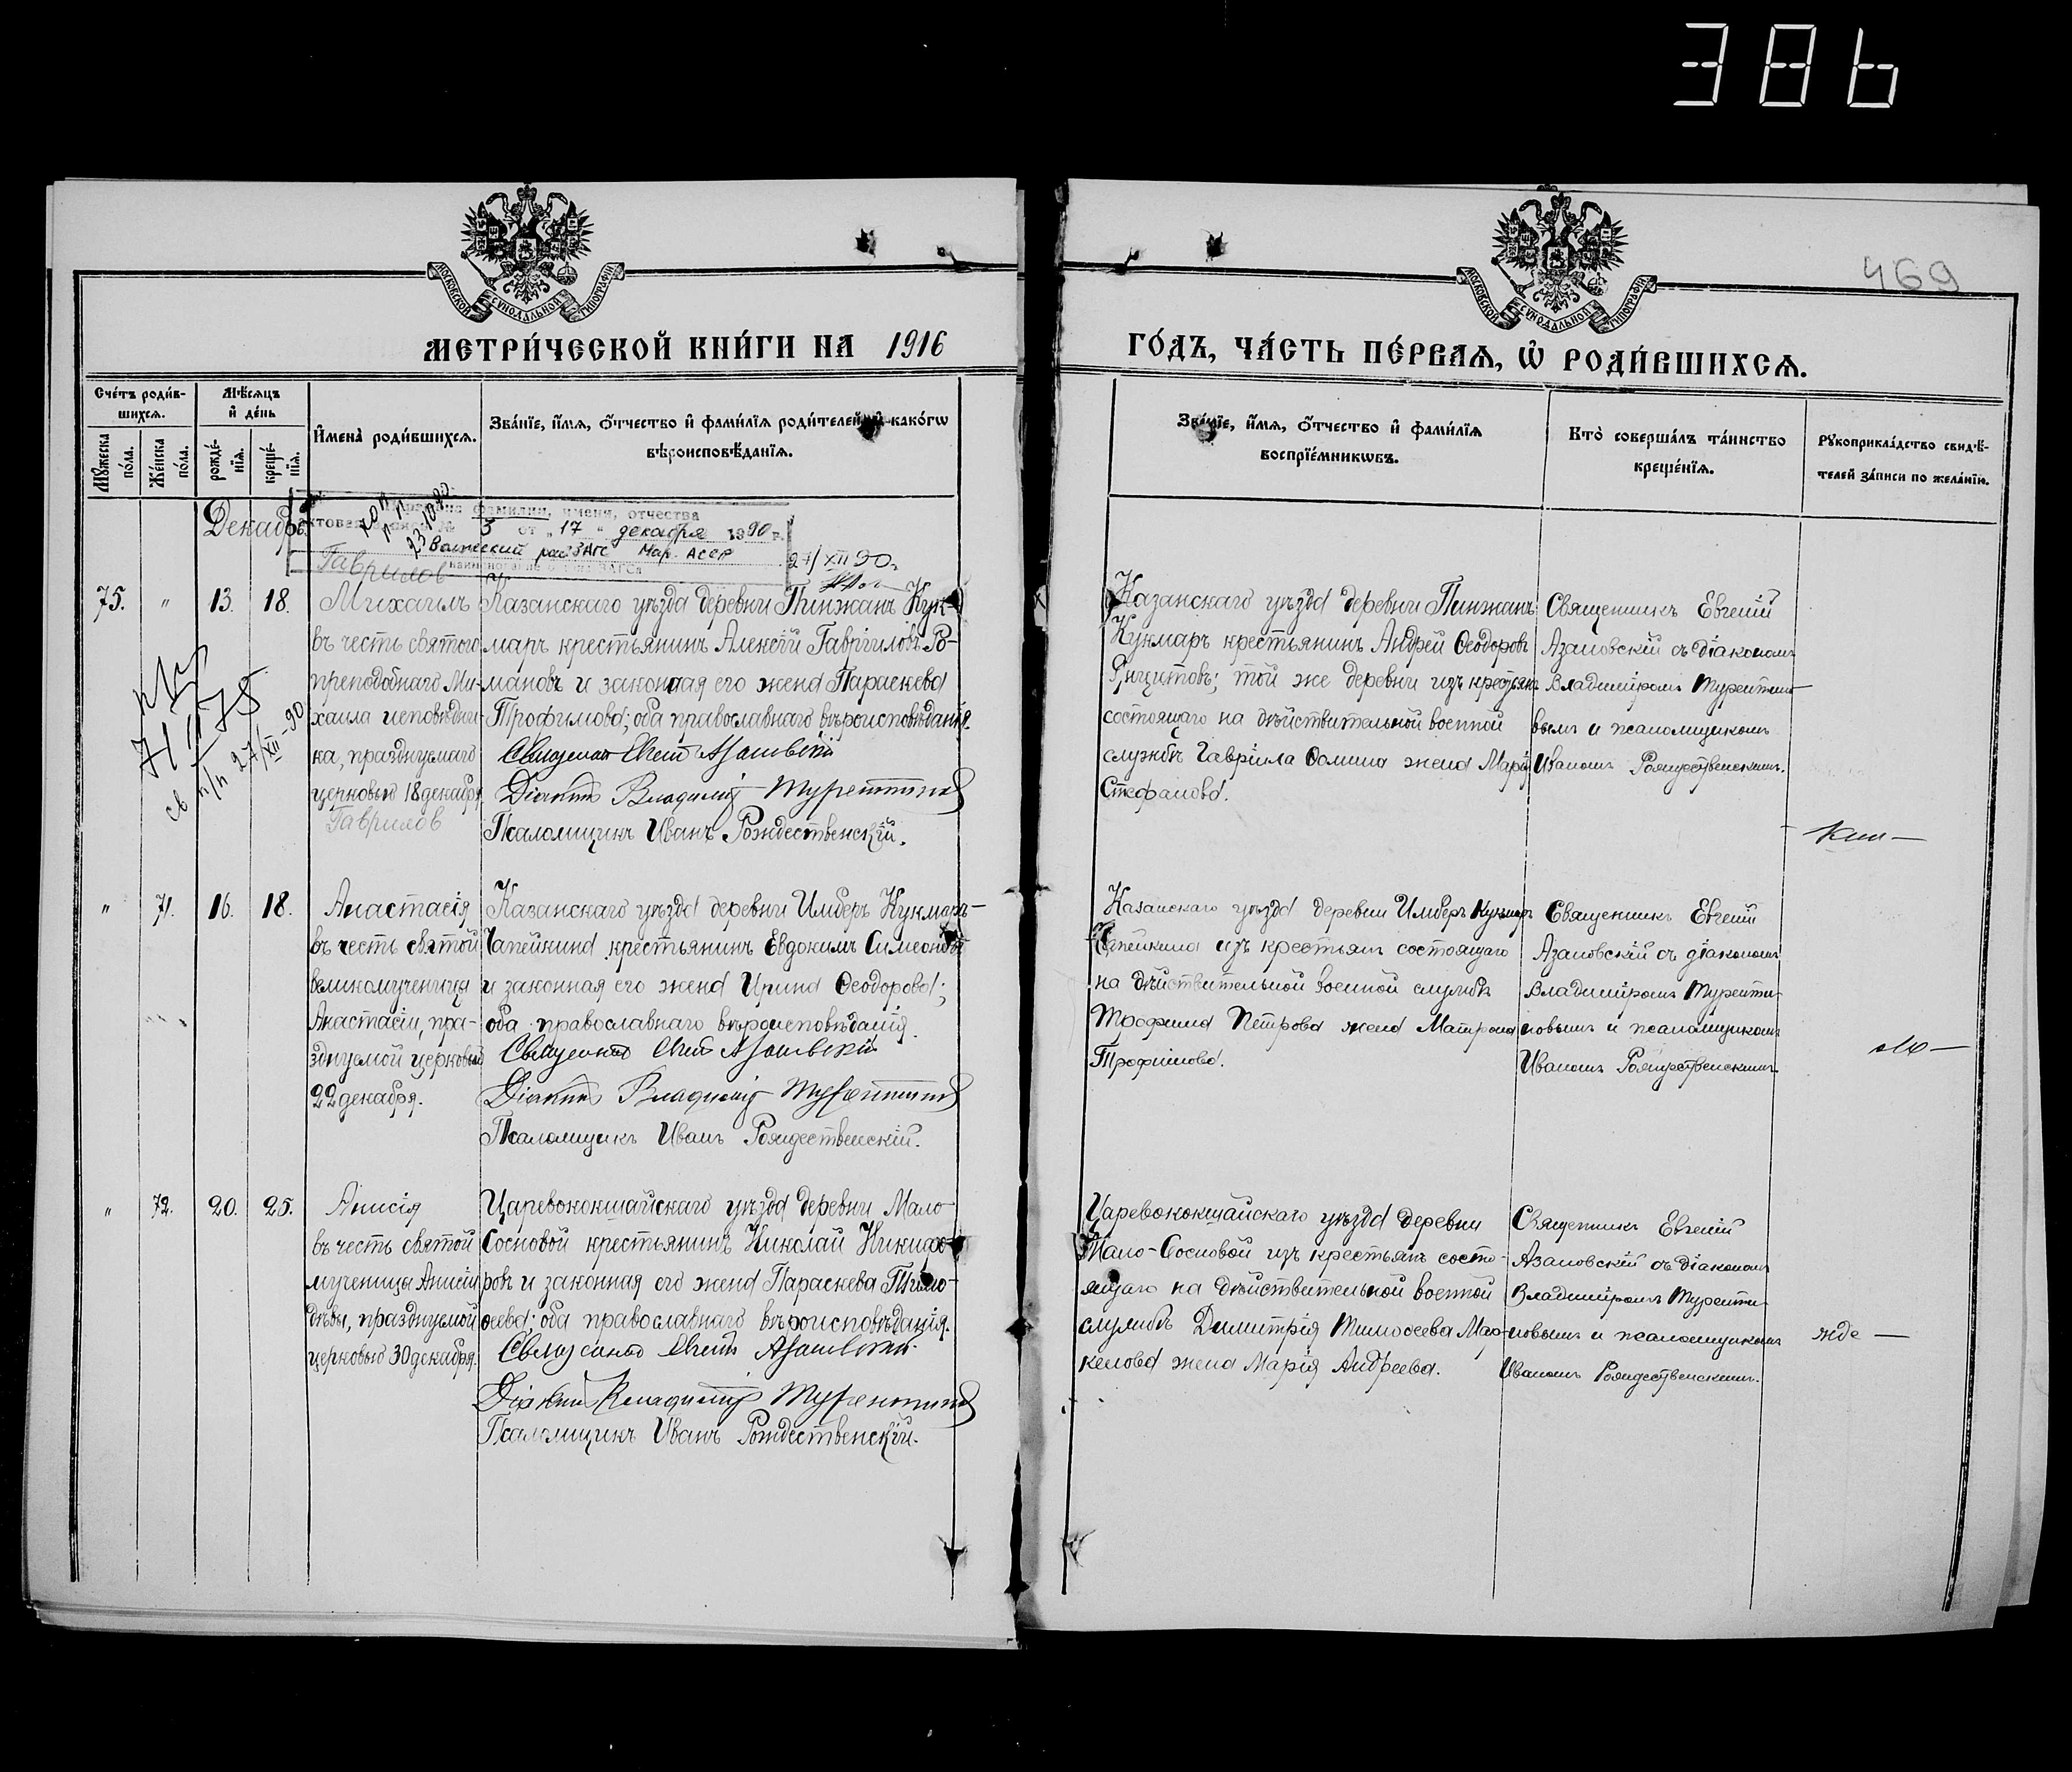 386
МОСКОВСКОЙ СѴНОДАЛЬНОЙ ТИПОГРАФІИ
МОСКОВСКОЙ СѴНОДАЛЬНОЙ ТИПОГРАФІИ
469
МЕТРИ́ЧЕСКОЙ КНИ́ГИ НА 1916
ГО́ДЪ, ЧА́СТЬ ПЕ́РВАЯ, Ѿ РОДИ́ВШИХСЯ.
Сче́тъ роди́в-
шихся.
Мѣ́сяцъ
и де́нь
Мꙋ́жеска
по́ла.
Же́нска
по́ла.
рожде́-
нїя.
креще́-
нїя.
И҆мена̀ роди́вшихся.
Зва́нїе, и҆́мя, ѻ҆́тчество и҆ фами́лїя роди́телей, и҆ како́гѡ
вѣроисповѣ́данїя.
Зва́нїе, и҆́мя, ѻ҆́тчество и҆ фами́лїя
воспрїе́мникѡвъ.
Кто̀ соверша́лъ та́инство
креще́нїя.
Рꙋкоприкла́дство свидѣ́-
телей за́писи по жела́нїю.
Декабрь
фамилия, имени, отчества
№ 5 от „17" декабря 1990 г.
Волжский райЗАГС Мар. АССР
Гаврилов
27/XII 90г
75. " 13. 18.
Михаилъ
въ честь святого
преподобнаго Ми-
хаила исповѣдни-
ка, празднуемаго
церковью 18 декабря
Гаврилов
Казанскаго уѣзда деревни Пинжанъ Кук-
маръ крестьянинъ Алексій Гавріиловъ Ро-
мановъ и законная его жена Параскева
Трофимова; оба православнаго вѣроисповѣданія.
Священникъ Евгеній Азановскій
Діаконъ Владиміръ
Псаломщикъ Иванъ Рождественскій.
Казанскаго уѣзда деревни Пинжанъ
Кукмаръ крестьянинъ Андрей Ѳеодоровъ
той же деревни изъ крестьянъ
состоящаго на дѣйствительной военной
службѣ Гавріила Ѳомина жена Марія
Стефанова.
Священникъ Евгеній
Азановскій съ діакономъ
Владиміромъ Туренти-
вымъ и псаломщикомъ
Иваномъ Рождественскимъ.
71/II 78
св п/п 27/XII-90
" 71. 16. 18.
Анастасія
въ честь святой
великомученицы
Анастасіи, пра-
зднуемой церковью
22 декабря.
Казанскаго уѣзда деревни Имберъ Кукмаръ-
Чапейкина крестьянинъ Евдокимъ Симеоновъ
и законная его жена Ирина Ѳеодорова;
оба православнаго вѣроисповѣданія.
Священникъ Евгеній Азановскій
Діаконъ Владиміръ
Псаломщикъ Иванъ Рождественскій.
Казанскаго уѣзда деревни Имберъ Кукмаръ
Чапейкина изъ крестьянъ состоящаго
на дѣйствительной военной службѣ
Трофима Петрова жена Матрона
Трофимова.
Священникъ Евгеній
Азановскій съ діакономъ
Владиміромъ Туренти-
новымъ и псаломщикомъ
Иваномъ Рождественскимъ.
" 72. 20. 25.
Анисія
въ честь святой
мученицы Анисіи
дѣвы, празднуемой
церковью 30 декабря.
Царевококшайскаго уѣзда деревни Мало-
Сосновой крестьянинъ Николай Никифо-
ровъ и законная его жена Параскева Тимо-
ѳеева; оба православнаго вѣроисповѣданія.
Священникъ Евгеній Азановскій.
Діаконъ Владиміръ
Псаломщикъ Иванъ Рождественскій.
Царевококшайскаго уѣзда деревни
Мало-Сосновой изъ крестьянъ состо-
ящаго на дѣйствительной военной
службѣ Димитрія Тимоѳеева Мао-
келова жена Марія Андреева.
Священникъ Евгеній
Азановскій съ діакономъ
Владиміромъ Туренти-
новымъ и псаломщикомъ
Иваномъ Рождественскимъ.
жде —